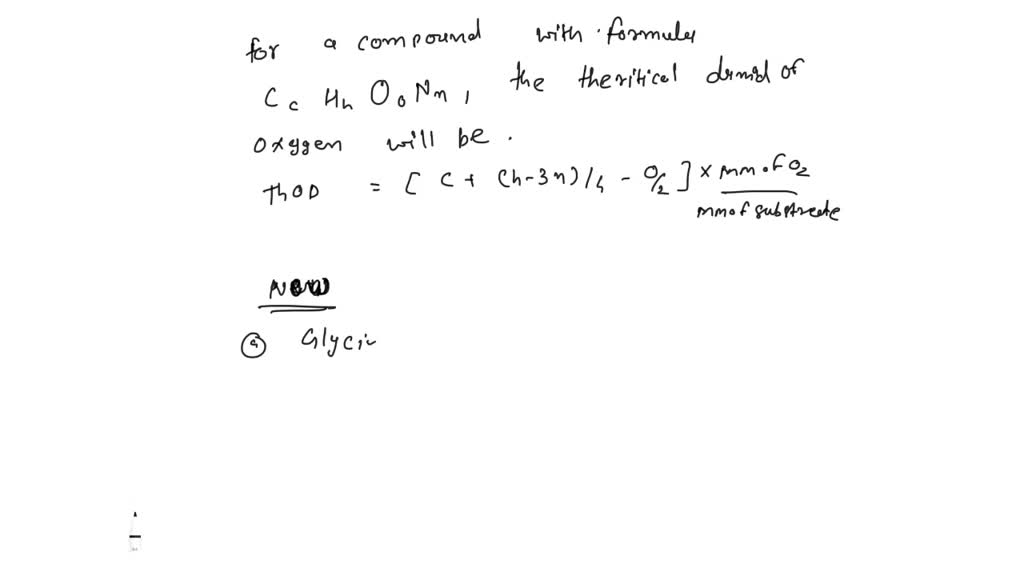 for a compound with formules
Cc Hh Oo Nn, the theritical demad of
oxygen will be.
ThOD = [ C + (h-3n)/4 - O/2 ] × mm.of O2
mm of substrate
Now
a Glycin